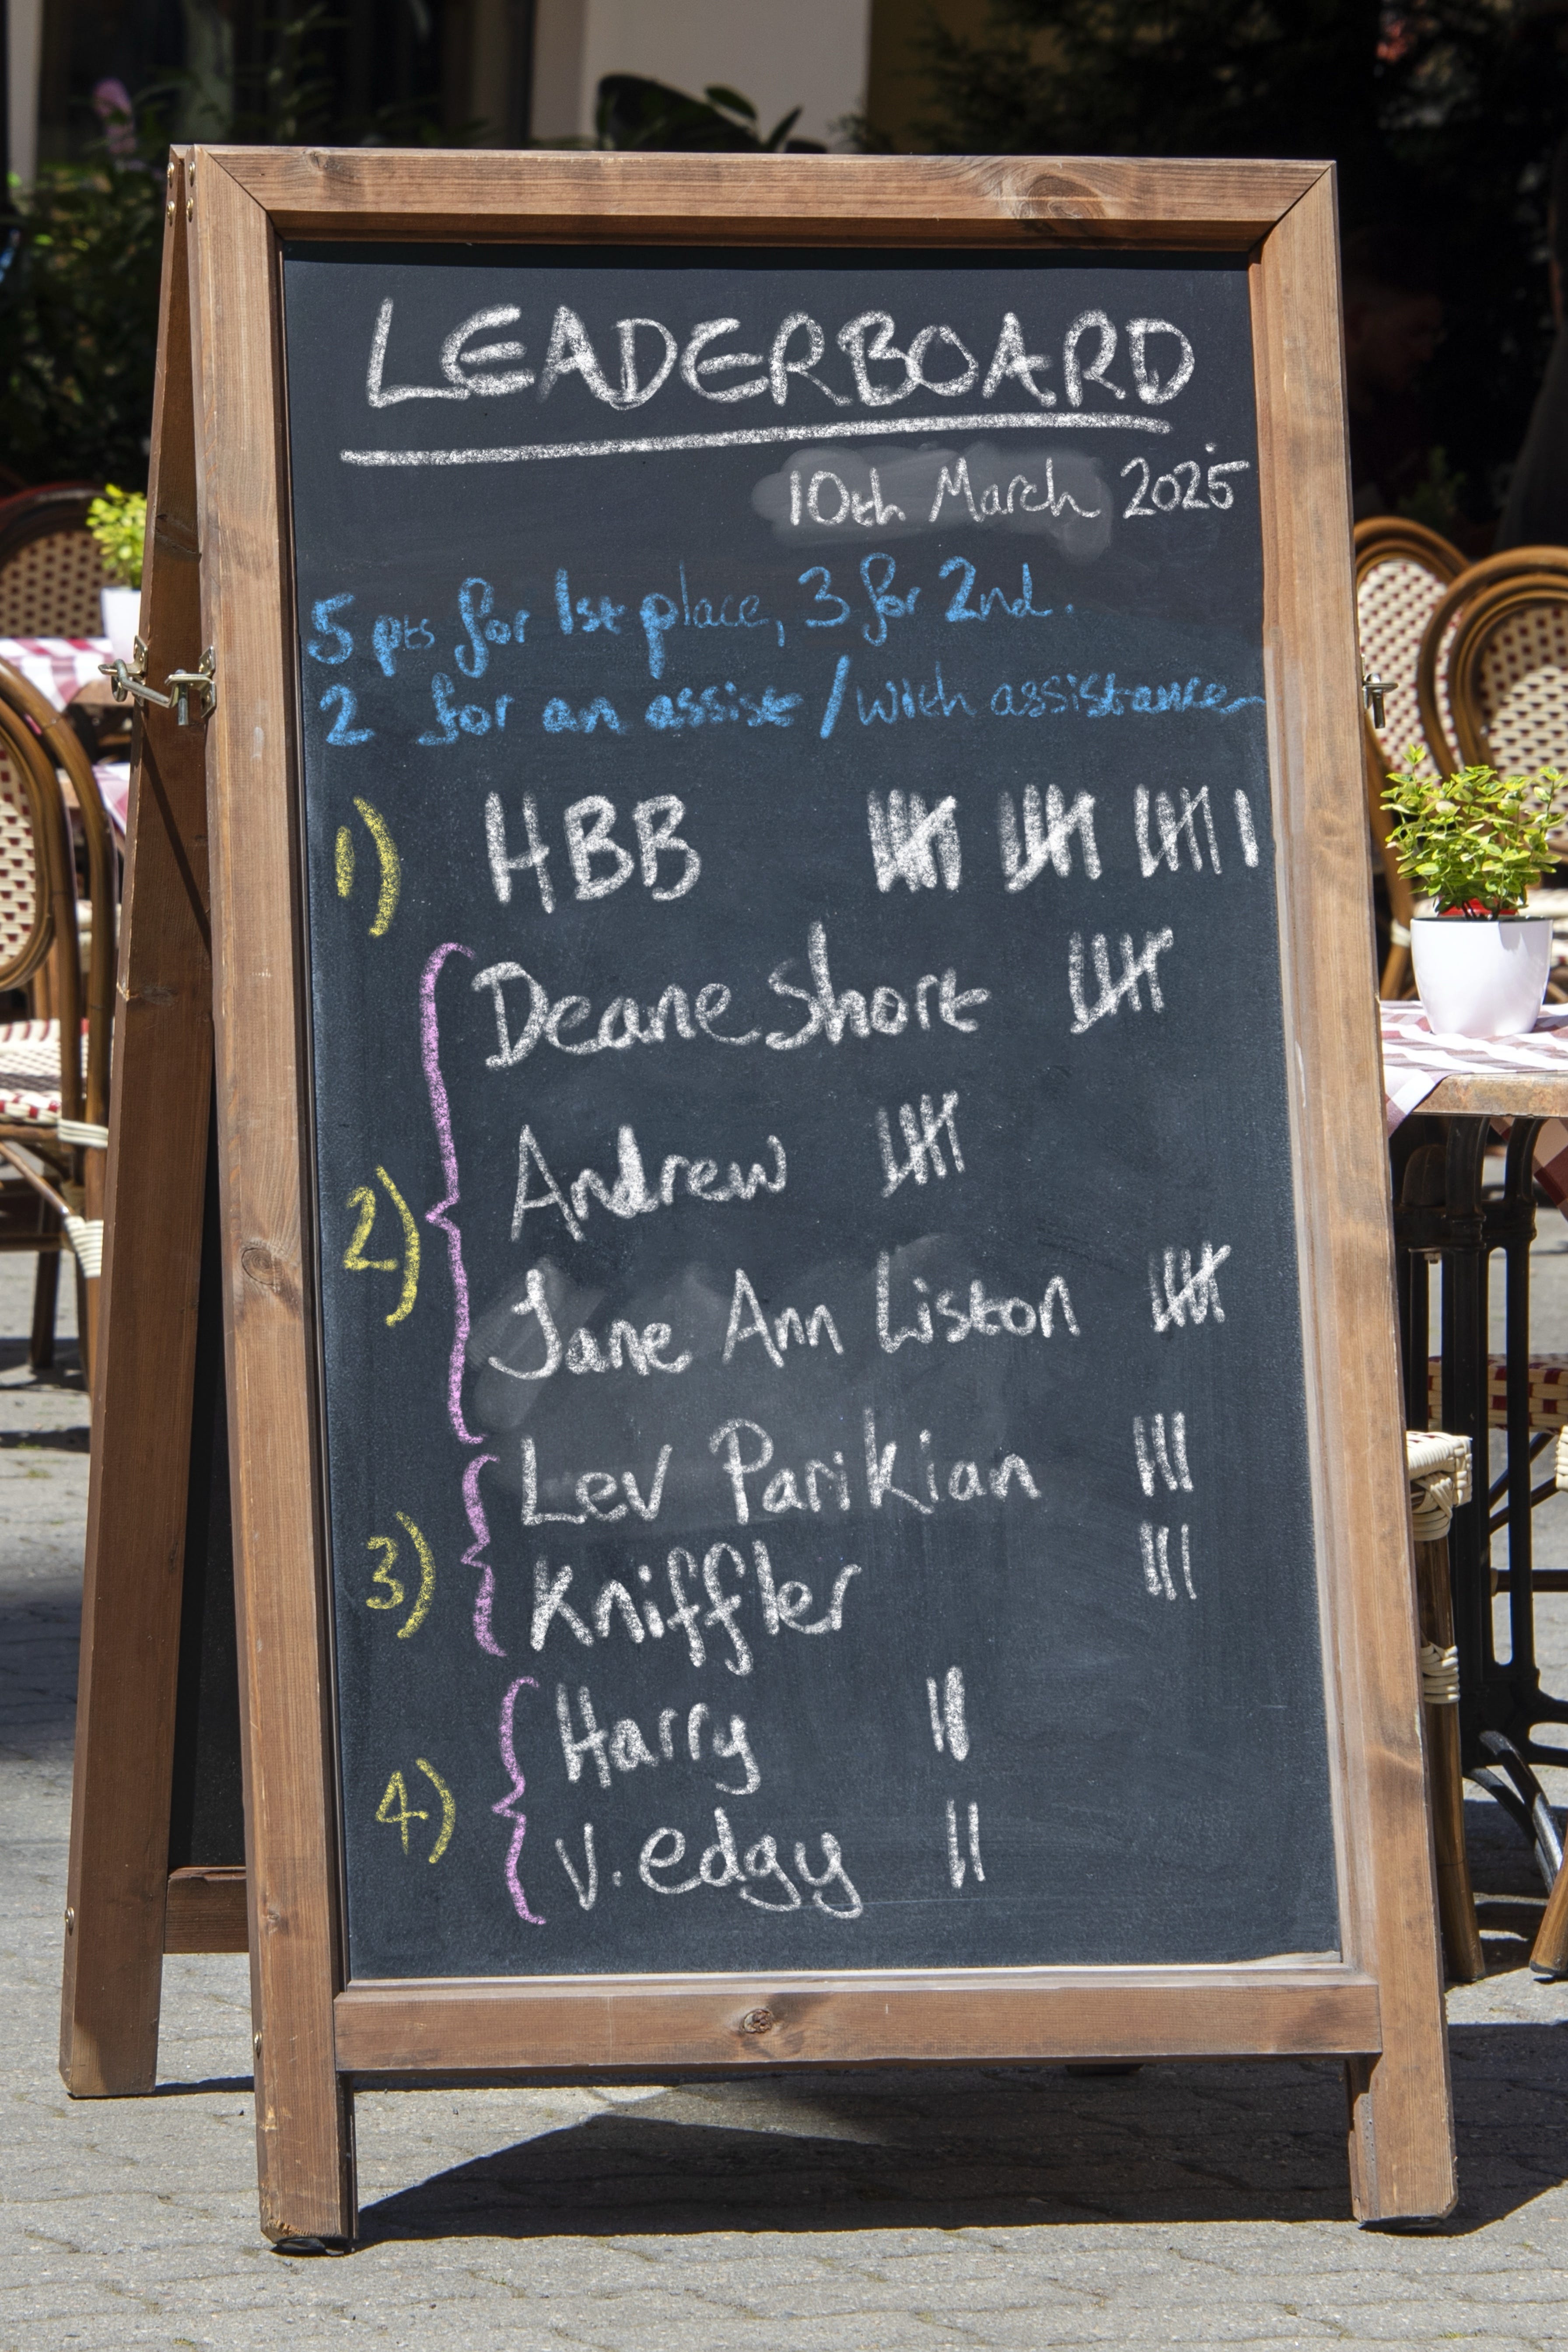 LEADERBOARD
10th March 2025
5 pts for 1st place, 3 for 2nd.
2 for an assist / with assistance
1) HBB
Deane Short
2) Andrew
Jane Ann Liston
Lev Parikian
3) Kniffler
Harry
4) V. edgy